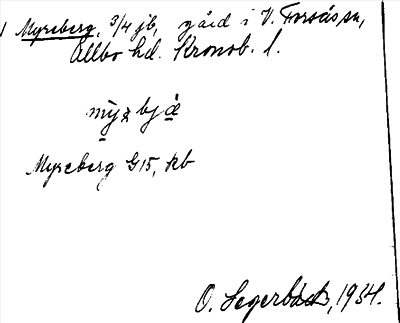 1 Myreberg, 3/4 jb, gård i V. Torsås sn,
Allbo hd. Kronob. l.
Myreberg G15, Kb
O. Segerbäck, 1934.